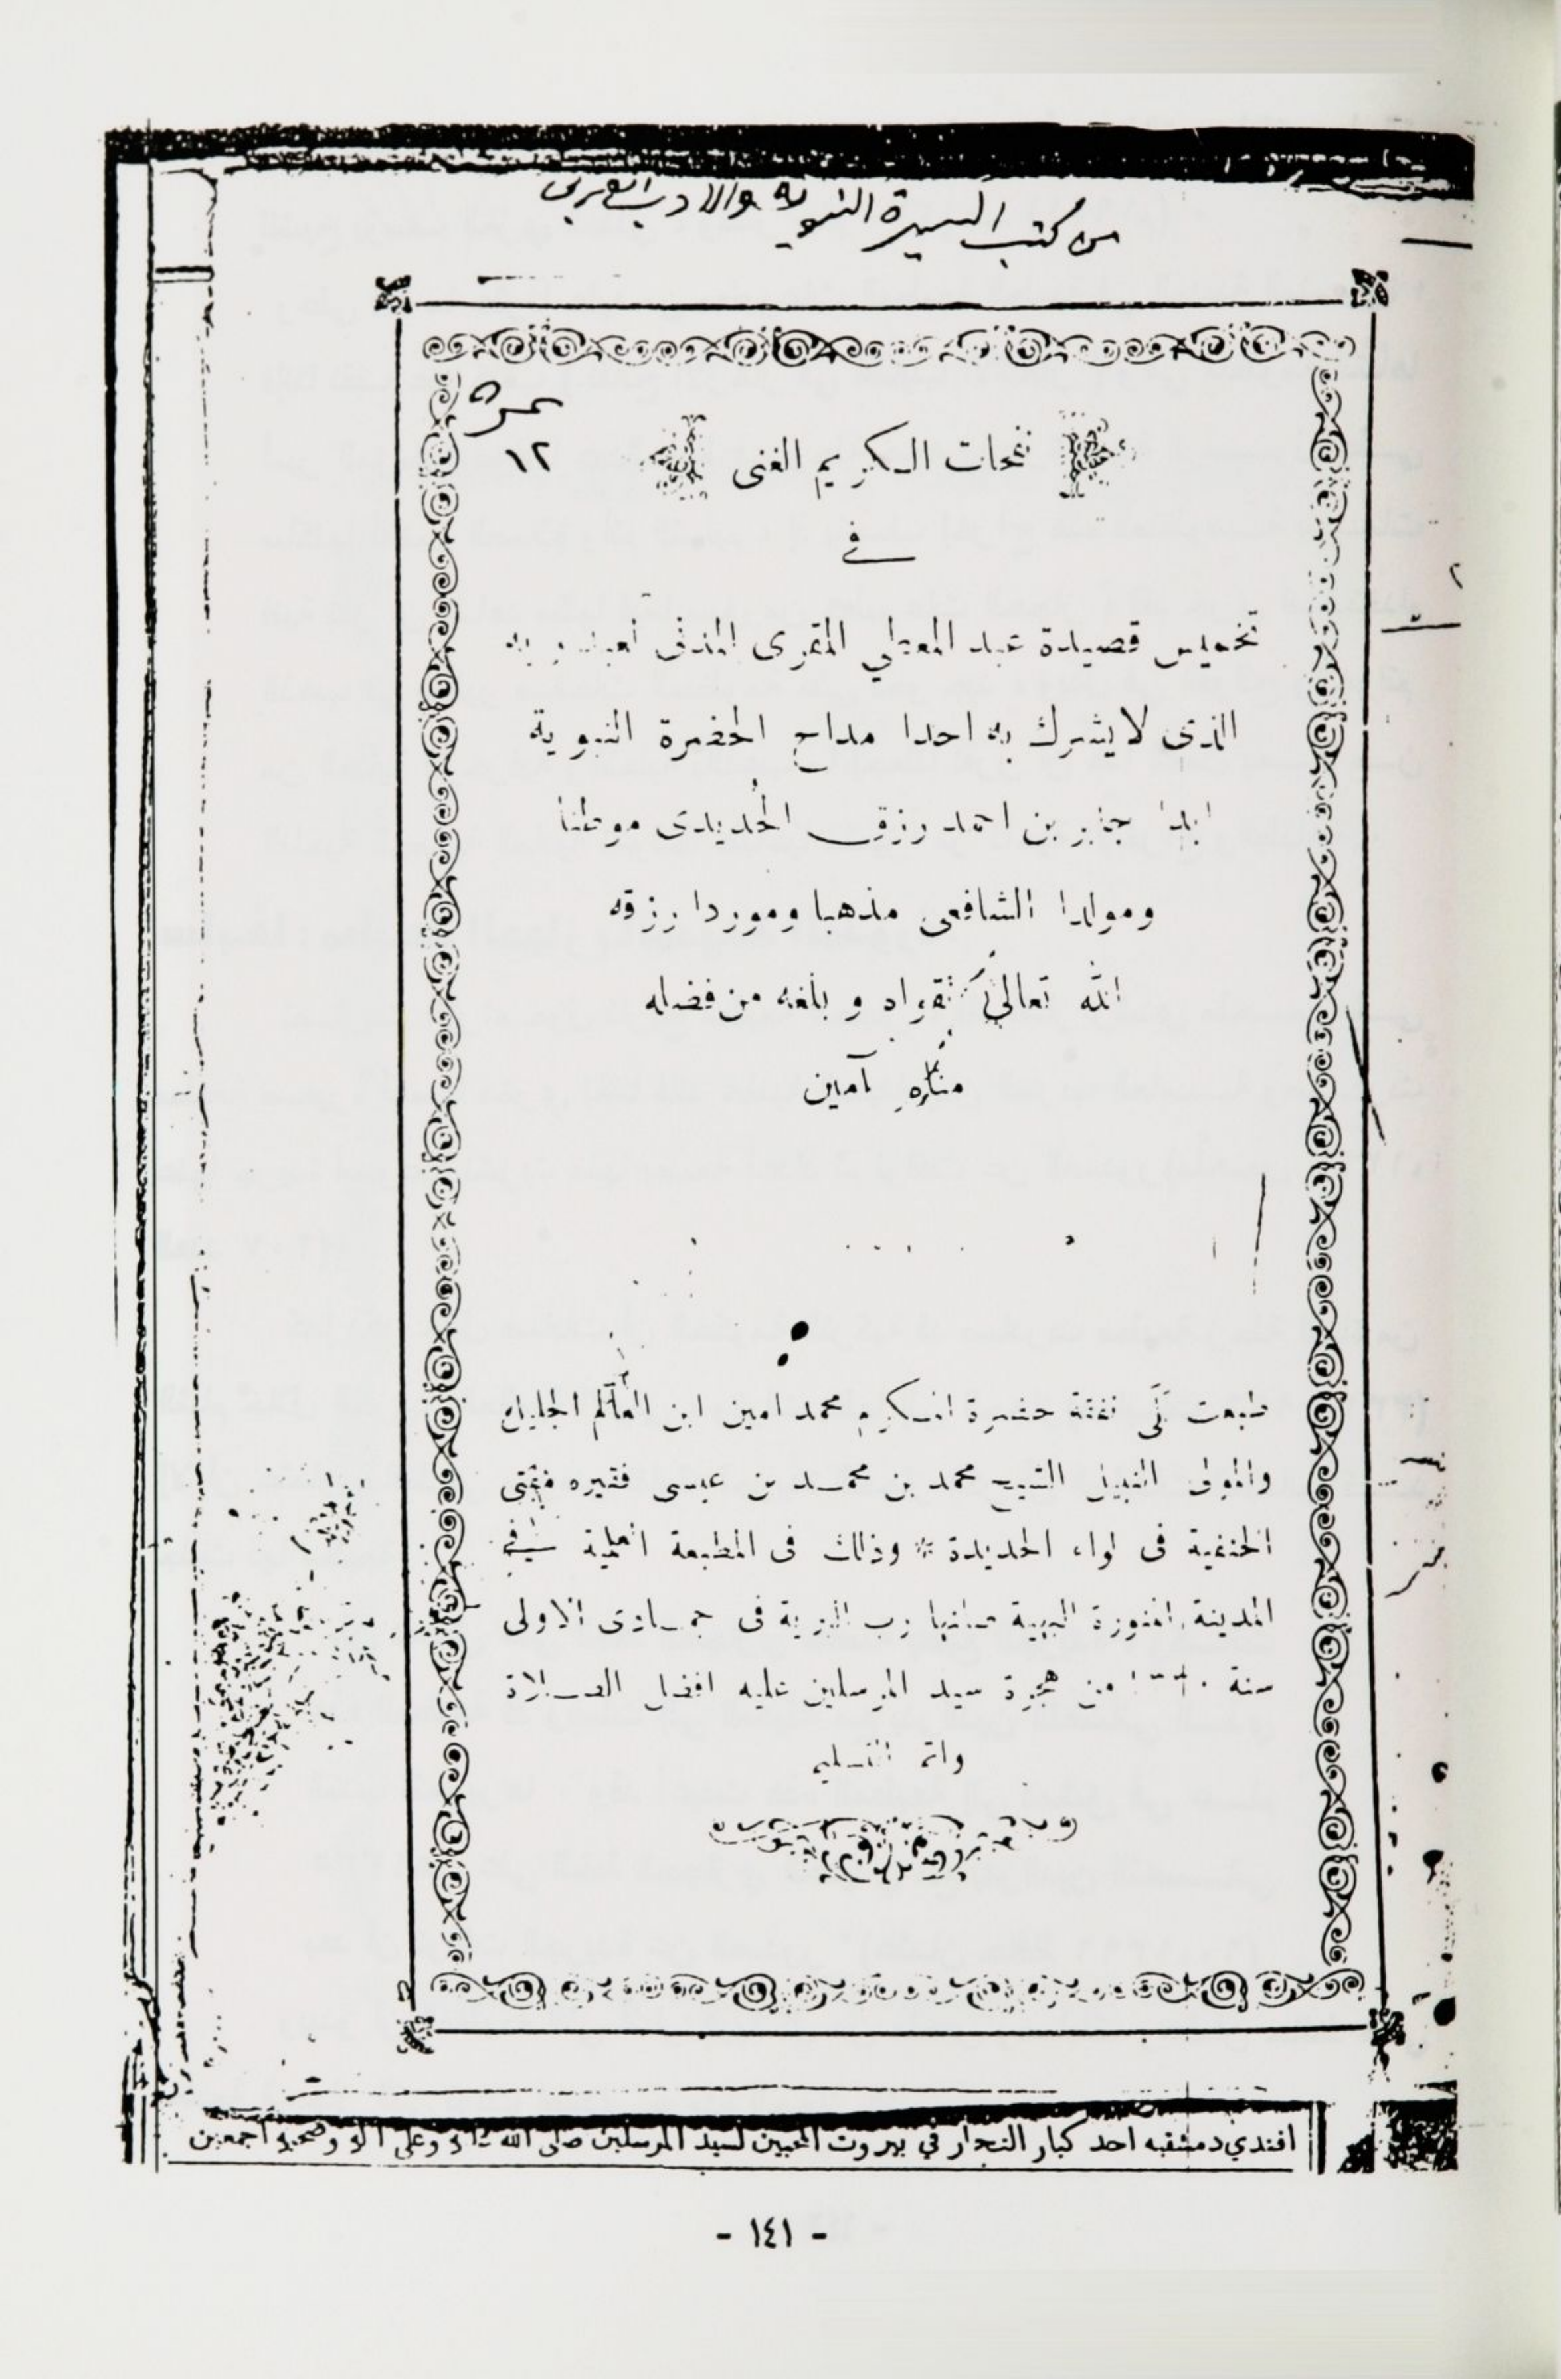 من كتب السيرة النبوية والادب العربي
نمرة
١٢
نفحات الكريم الغنى
في
تخميس قصيدة عبد المعطي المقرى الذى
الذى لا يشرك به احدا مداح الحضرة النبوية
ابدا جابر بن احمد رزق الحُديدى موطنا
ومولدا الشافعى مذهبا وموردا رزقه
الله تعالى تقواه و بلغه من فضله
مناه آمين
طبعت على نفقة حضرة المكرم محمد امين ابن العالم الجليل
والمولى النبيل الشيخ محمد بن محمد بن عيسى فقيره مفتى
الحنفية فى لواء الحديدة * وذلك فى المطبعة العلمية في
المدينة المنورة البهية صانها رب البرية فى جمادى الاولى
سنة من هجرة سيد المرسلين عليه افضل الصلاة
واتم التسليم
افندي دمشقيه احد كبار التجار في بيروت المحبين لسيد المرسلين صلى الله عليه وعلى آله وصحبه اجمعين
- ١٤١ -